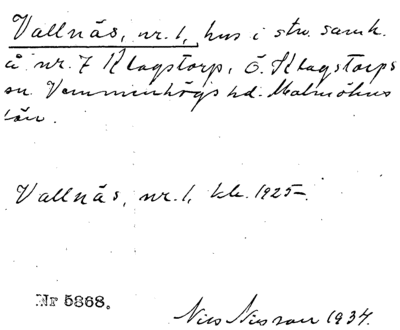 Vallnäs, nr. 1, hus i strv. samh.
å nr. 7 Klagstorp, Ö. Klagstorps
sn. Vemmenhögs hd. Malmöhus
län.
Vallnäs, nr. 1, kl. 1925.
Nr 5368.
Nils Nilsson 1934.